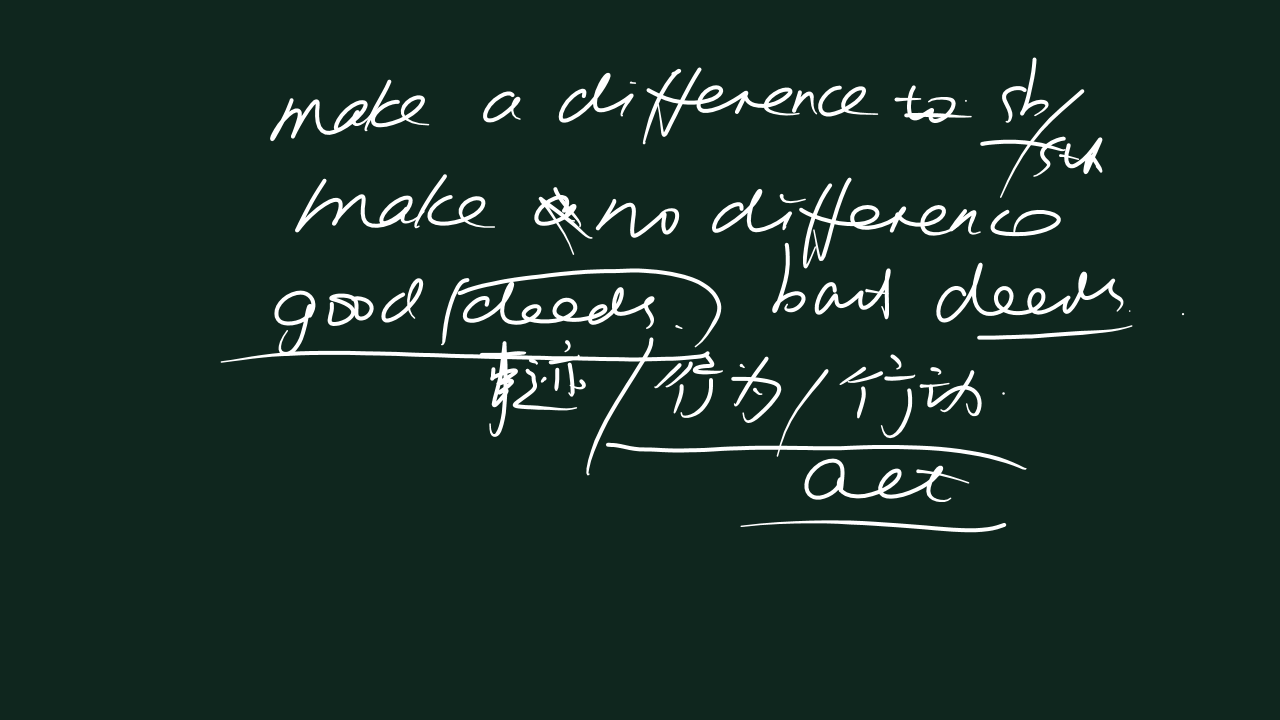 make a difference to sb/sth
make no difference
good (deeds.) bad deeds.
事迹/行为/行动.
act